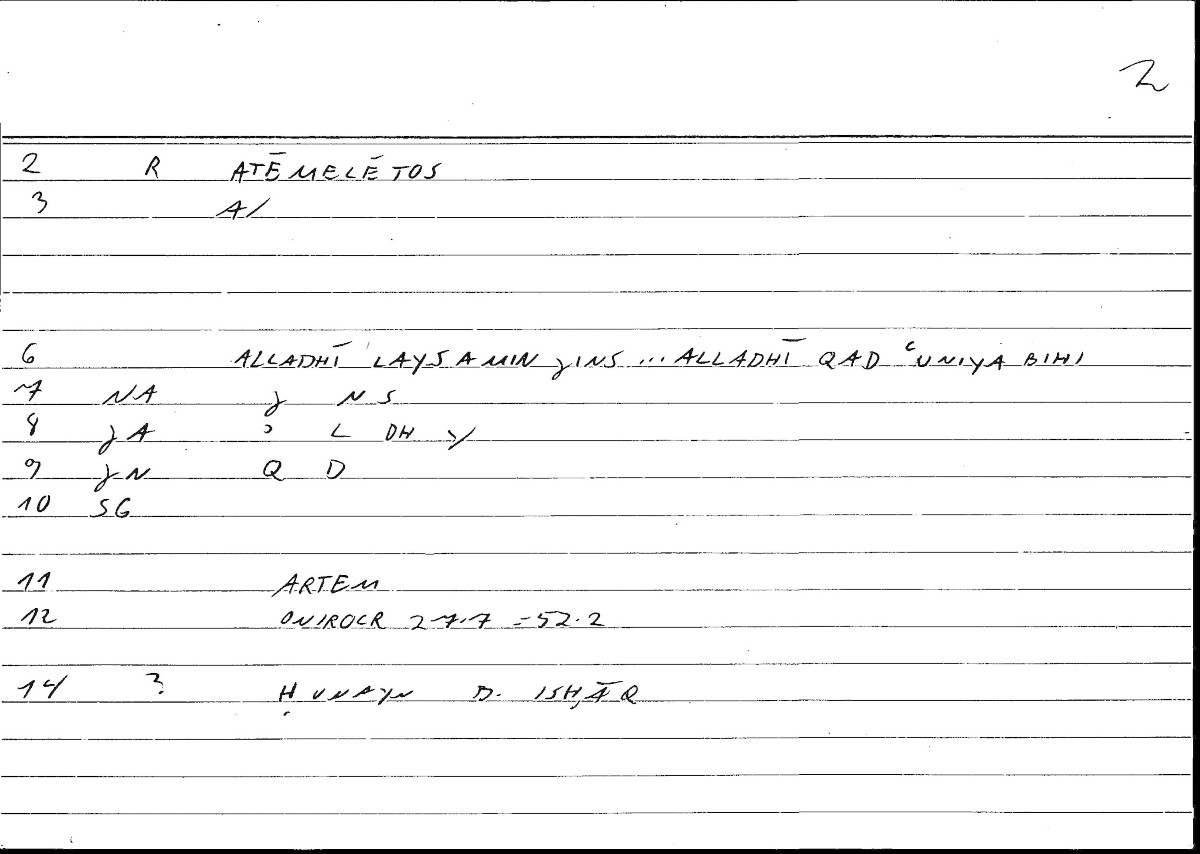 2
2 R ATĒMELĒTOS
3 A/
6 ALLADHĪ LAYSA MIN JINS ... ALLADHĪ QAD ʿUNIYA BIHI
7 NA J NS
8 JA ʾ L DH Y
9 JN Q D
10 SG
11 ARTEM
12 ONIROCR 27.7 = 52.2
14 ? ḤUNAYN B. ISḤĀQ